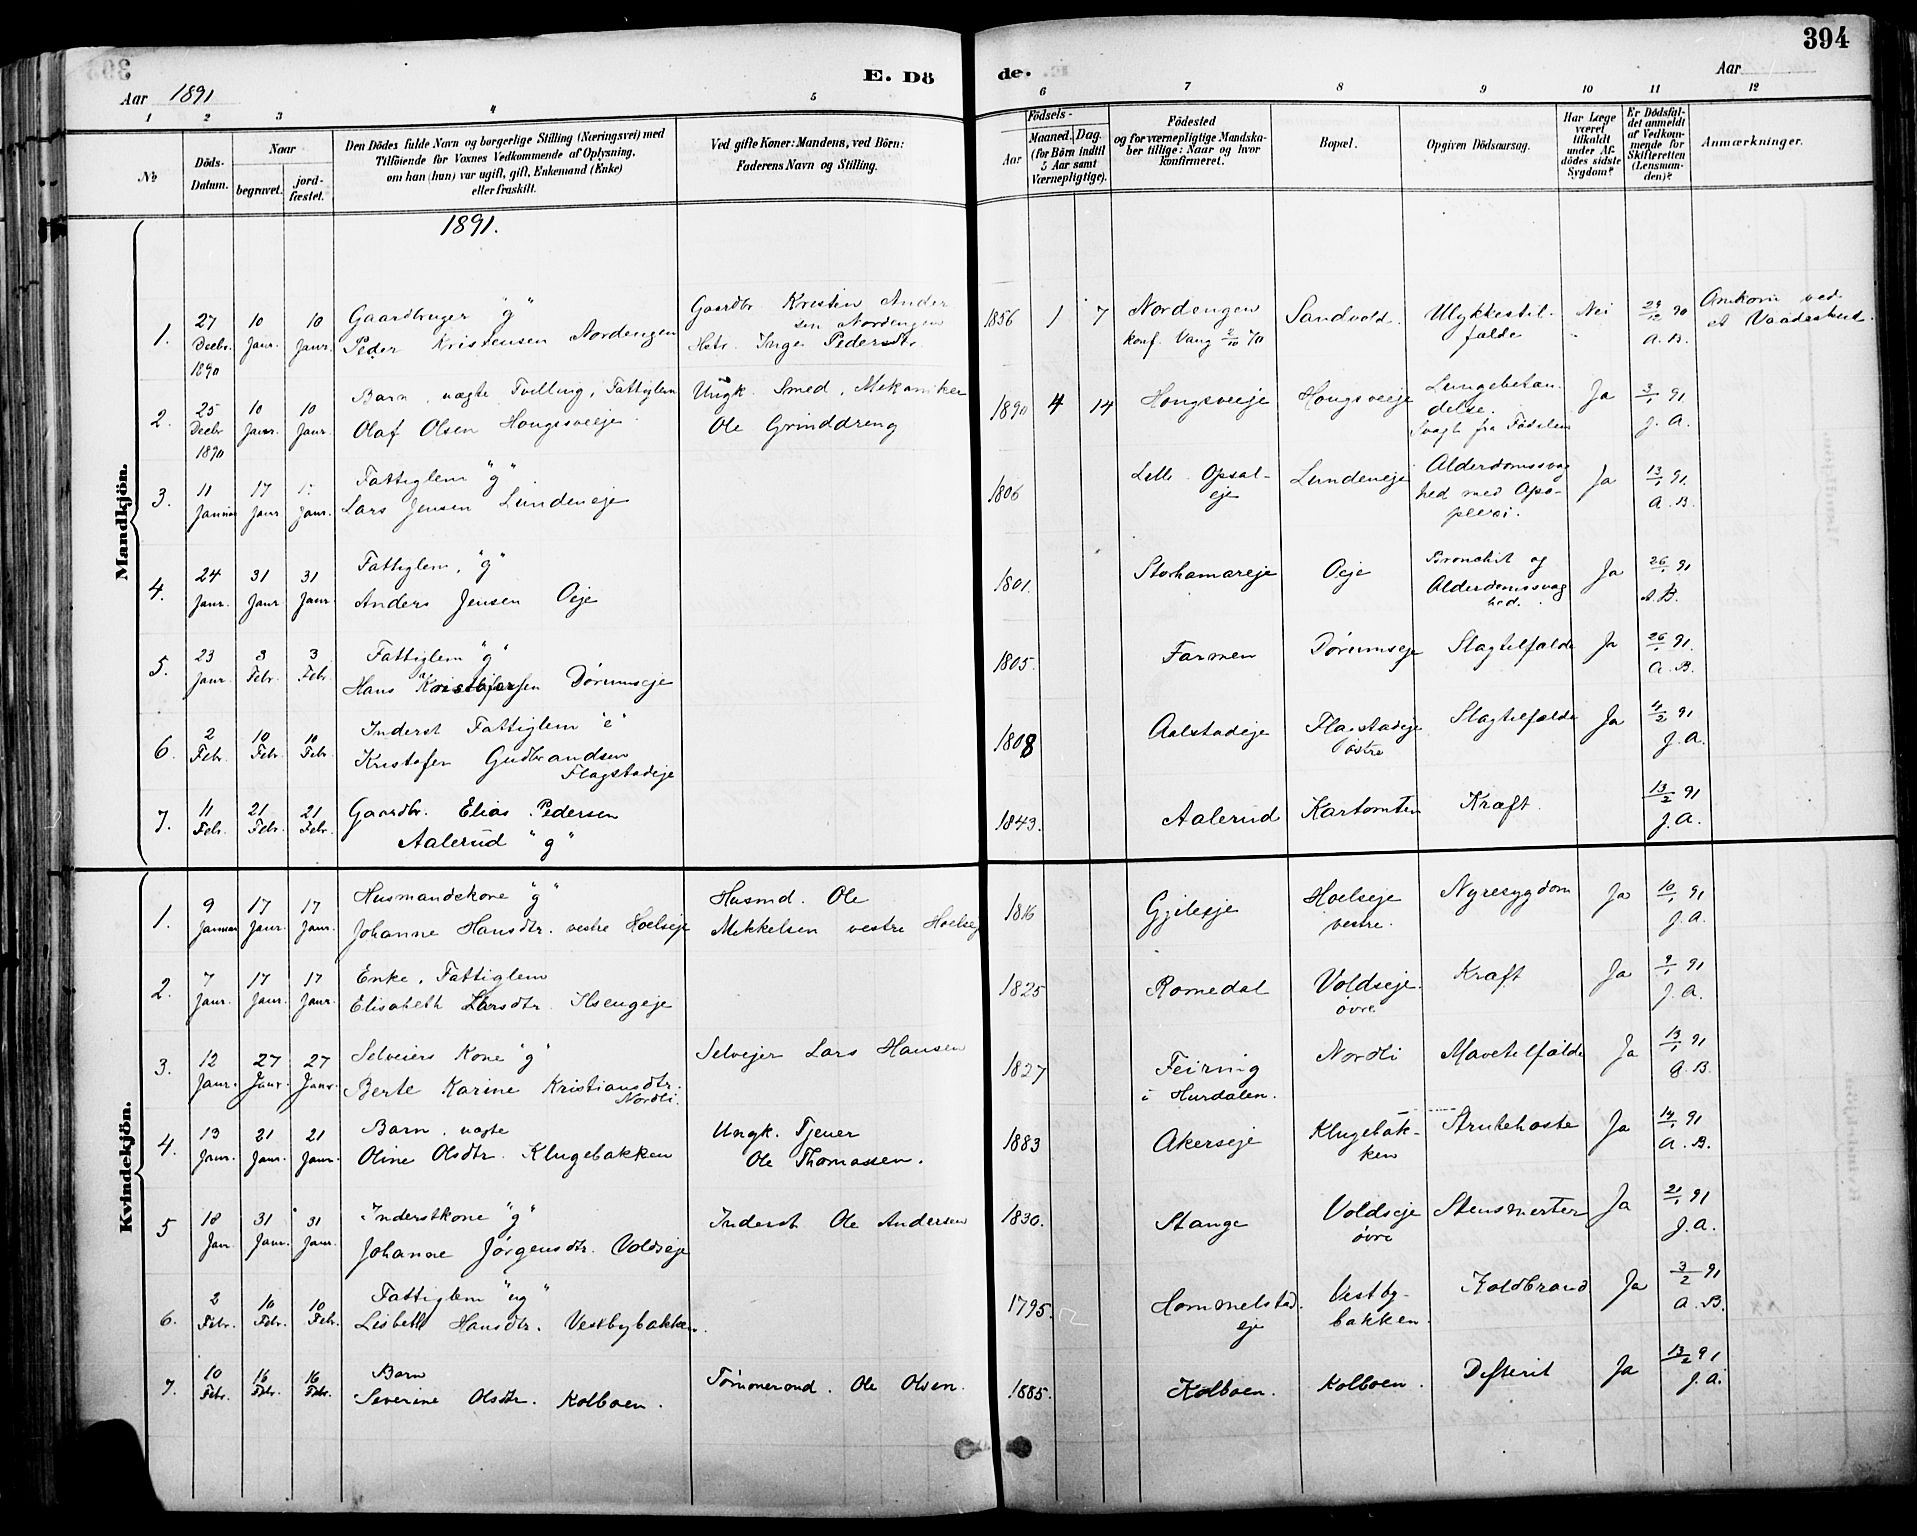 394
E. Dö de.
Aar 1891
Aar
1 2 3 4 5 6 7 8 9 10 11 12
No
Döds-Datum.
Naar
begravet.
jord-fæstet.
Den Dödes fulde Navn og borgerlige Stilling (Næringsvei) med
Tilföiende for Voxnes Vedkommende af Oplysning,
om han (hun) var ugift, gift, Enkemand (Enke)
eller fraskilt.
Ved gifte Koner: Mandens, ved Börn:
Faderens Navn og Stilling.
Födsels-
Aar
Maaned. Dag.
(for Börn indtil
5 Aar samt
Værnepligtige).
Födested
og for værnepligtige Mandska-
ber tillige: Naar og hvor
konfirmeret.
Bopæl.
Opgiven Dödsaarsag.
Har Læge
været
tilkaldt
under Af-
dödes sidste
Sygdom?
Er Dödsfal-
det anmeldt
af Vedkom-
mende for
Skifteretten
(Lensman-
den)?
Anmærkninger.
1891.
Mandkjön.
1. 27 Decbr. 1890 10 Janr. 10 Janr. Gaardbruger "g"
Peder Kristensen Nordengen
Gaardbr. Kristen Ander
sen Nordengen
Hstr. Inge Pedersdtr.
1856 1 7 Nordengen
konf. Vang 2/10 70
Sandvold. Ulykkestil-
fælde
Nei 29/12 90
A. B.
Omkom ved
et Vaadeskud.
2. 25 Decbr 1890 10 Janr. 10 Janr. Barn, uægte Tvilling, Fattiglem
Olaf Olsen Hougsveeje
Ungk. Smed, Mekaniker
Ole Grinddreng
1890 4 14 Hougsveeje Hougsveeje Lungebetæn-
delse.
Svagh fra Fødselen
Ja 3/1 91
J. A.
3. 11 Januar 17 Janr Janr. Fattiglem "g"
Lars Jensen Lundeneje
1806 Lille Opsal-
eje
Lundeneje Alderdomssvag
hed med Apo-
plexi.
Ja 13/1 91
A. B.
4. 24 Janr. 31 Janr 31 Janr. Fattiglem, "g"
Anders Jensen Oeje
1801. Storhamareje Oeje Bronchit og
Alderdomssvag
hed.
Ja 26/1 91
A. B.
5. 23 Janr. 3 Febr. 3 Febr Fattiglem "g"
Hans Kristofersen Dørumseje
1805. Farmen Dørumseje Slagtilfælde Ja 26/1 91.
A. B.
6. 2 Febr. 10 Febr. 10 Febr. Inderst Fattiglem "e"
Kristofer Gudbrandsen
Flagstadeje
1808 Aalstadeje Flagstadeje
østre
Slagtilfælde Ja 4/2 91
J. A.
7. 11 Febr. 21 Febr. 21 Febr. Gaardbr. Elias Pedersen
Aalerud "g"
1843. Aalerud Kartomten Kræft. 13/2 91
J. A.
Kvindekjön.
1. 9 Januar 17 Janr. 17 Janr. Husmandskone "g"
Johanne Hansdtr. vestre Hoelseje
Husmd. Ole
Mikkelsen vestre Hoelsej
1816 Hoelseje
vestre.
Nyresygdom Ja 10/1 91
J. A.
2. 7 Janr. 17 Janr. 17 Janr. Enke, Fattiglem
Elisabeth Larsdtr. Ilsengeje
1825 Romedal Voldseje.
øvre
Kræft Ja 9/1 91
J. A.
3. 12 Janr. 27 Janr. 27 Janr. Selveiers Kone "g"
Berte Karine Kristiansdtr.
Nordli.
Selveier Lars Hansen
1827 Feiring
i Hurdalen.
Nordli Mavetilfælde Ja 13/1 91
A. B.
4. 13 Janr. 21 Janr. 21 Janr. Barn, uægte
Oline Olsdtr. Klugebakken
Ungk. Tjener
Ole Thomassen.
1883 Akerseje Klugebak-
ken
Strubehoste Ja 14/1 91
A. B.
5 18 Jan 31 Janr. 31 Janr. Inderstkone "g"
Johanne Jørgensdtr. Voldseje
Inderst Ole Andersen
1830. Stange Voldseje
øvre
Stensmerter Ja 21/1 91
J. A.
6. 2 Febr. 10 Febr. 10 Febr. Fattiglem "ug"
Lisbeth Hansdtr. Vestbybakken.
1795. Hommelstad.
eje
Vestby-
bakken.
Koldbrand Ja 3/2 91
A. B.
7. 10 Febr. 16 Febr. 16 Febr. Barn
Severine Olsdtr. Kolboen.
Tømmermd. Ole Olsen.
1885. Kolboen. Kolboen. Difterit Ja 13/2 91
J. A.